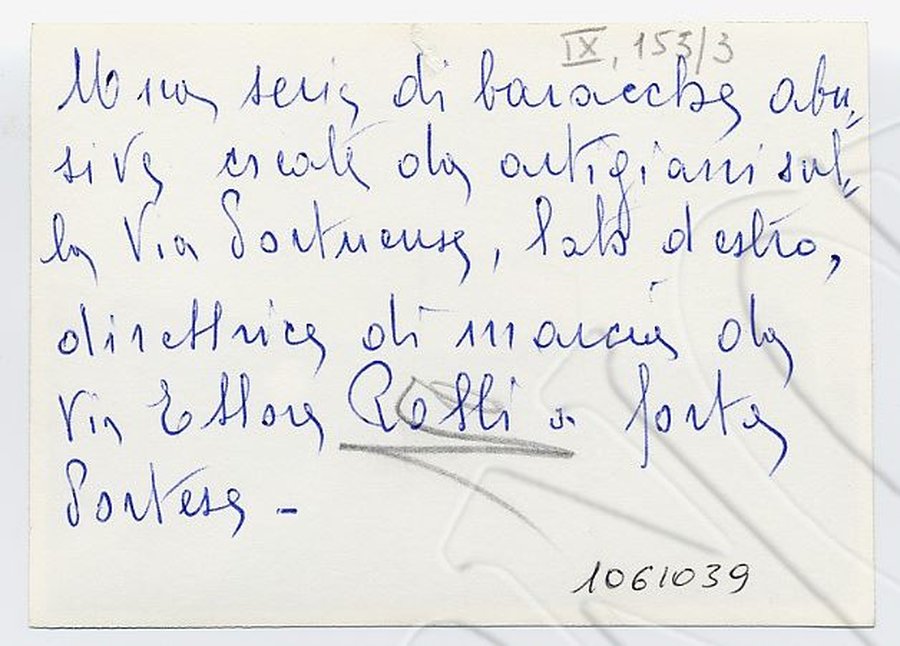 IX, 153/3
Una serie di baracche abu=
sive create da artigiani sul=
la Via Portuense, lato destro,
direttrice di marcia da
Via Ettore Rolli a porta
Portese -
1061039